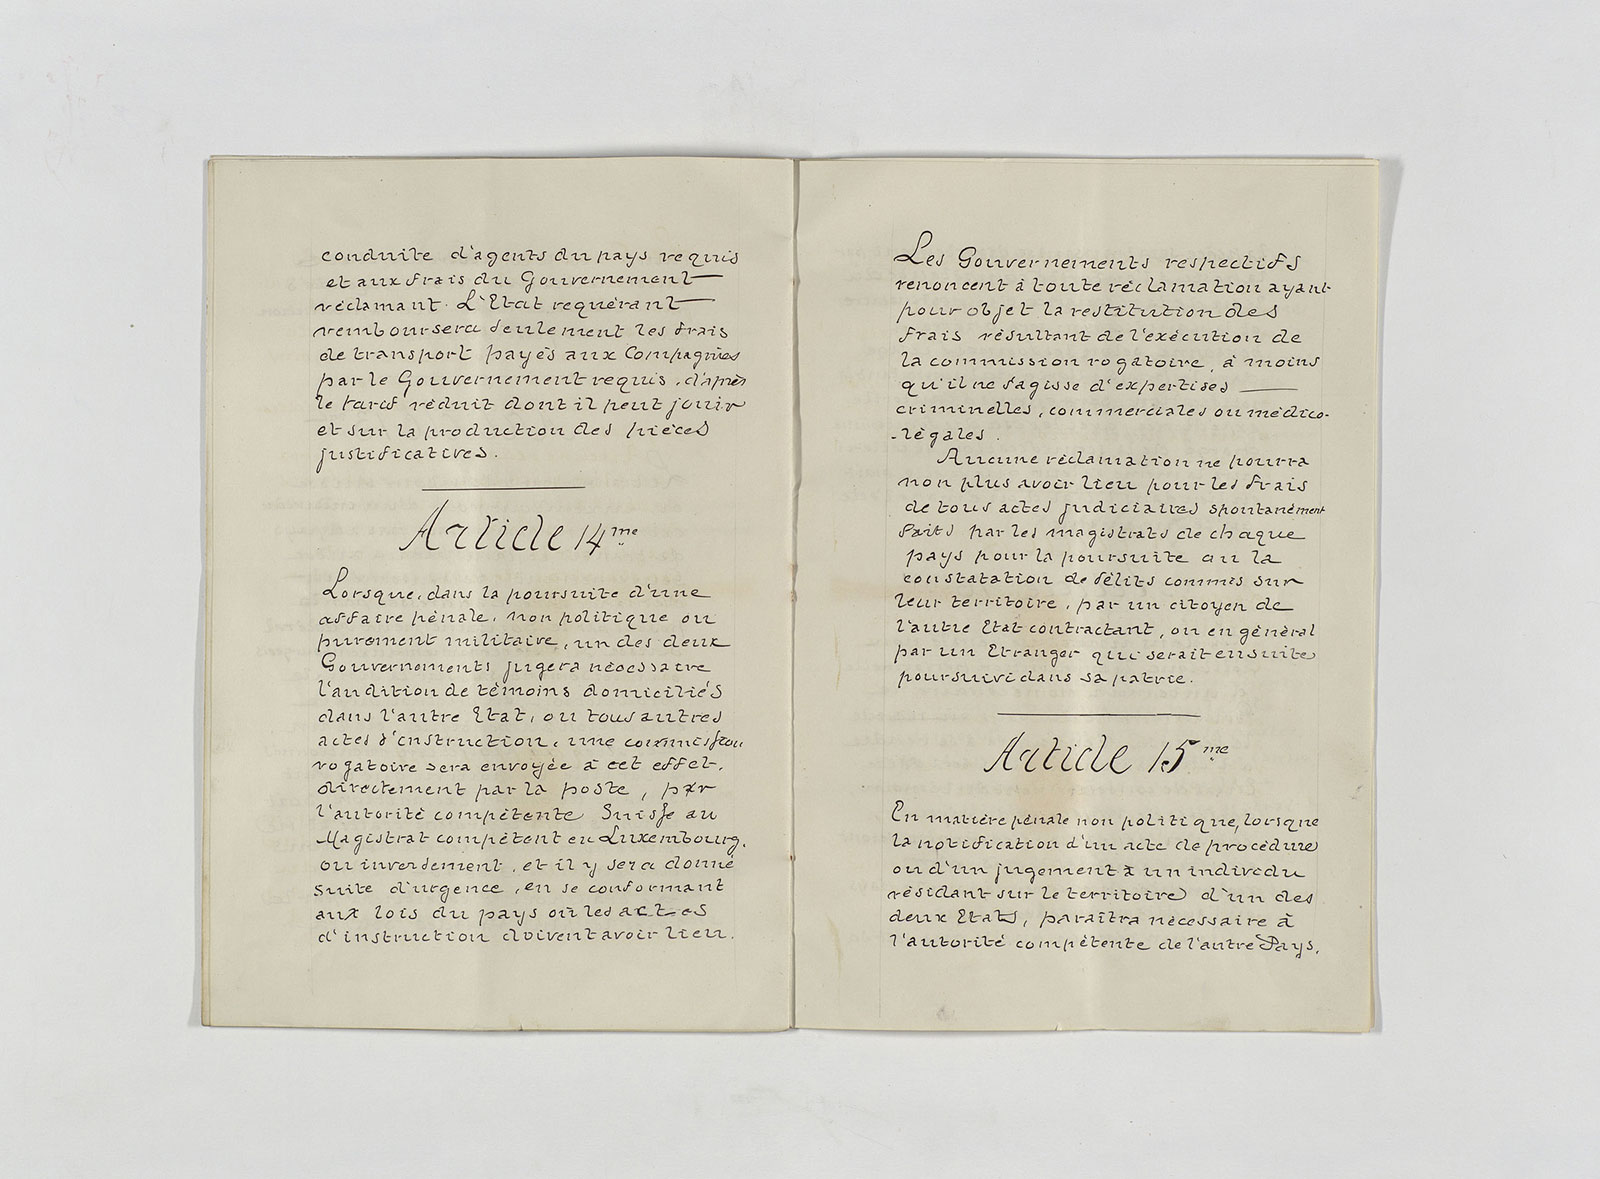 conduite d'agents du pays requis
et aux frais du Gouvernement
réclamant. L'Etat requérant
remboursera seulement les frais
de transport payés aux Compagnies
par le Gouvernement requis, d'après
le tarif réduit dont il peut jouir
et sur la production des pièces
justificatives.
Article 14me
Lorsque, dans la poursuite d'une
affaire pénale, non politique ou
purement militaire, un des deux
Gouvernements jugera nécessaire
l'audition de témoins domiciliés
dans l'autre Etat, ou tous autres
actes d'instruction, une commission
rogatoire sera envoyée à cet effet,
directement par la poste, par
l'autorité compétente Suisse au
Magistrat compétent en Luxembourg,
ou inversement, et il y sera donné
suite d'urgence, en se conformant
aux lois du pays où les actes
d'instruction doivent avoir lieu.
Les Gouvernements respectifs
renoncent à toute réclamation ayant
pour objet la restitution des
frais résultant de l'exécution de
la commission rogatoire, à moins
qu'il ne s'agisse d'expertises
criminelles, commerciales ou médico-
-légales.
Aucune réclamation ne pourra
non plus avoir lieu pour les frais
de tous actes judiciaires spontanément
faits par les magistrats de chaque
pays pour la poursuite ou la
constatation de délits commis sur
leur territoire, par un citoyen de
l'autre Etat contractant, ou en général
par un Etranger qui serait ensuite
poursuivi dans sa patrie.
Article 15me
En matière pénale non politique, lorsque
la notification d'un acte de procédure
ou d'un jugement à un individu
résidant sur le territoire d'un des
deux Etats, paraîtra nécessaire à
l'autorité compétente de l'autre Pays,